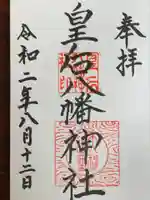 奉拝
皇后八幡神社
令和二年八月十二日